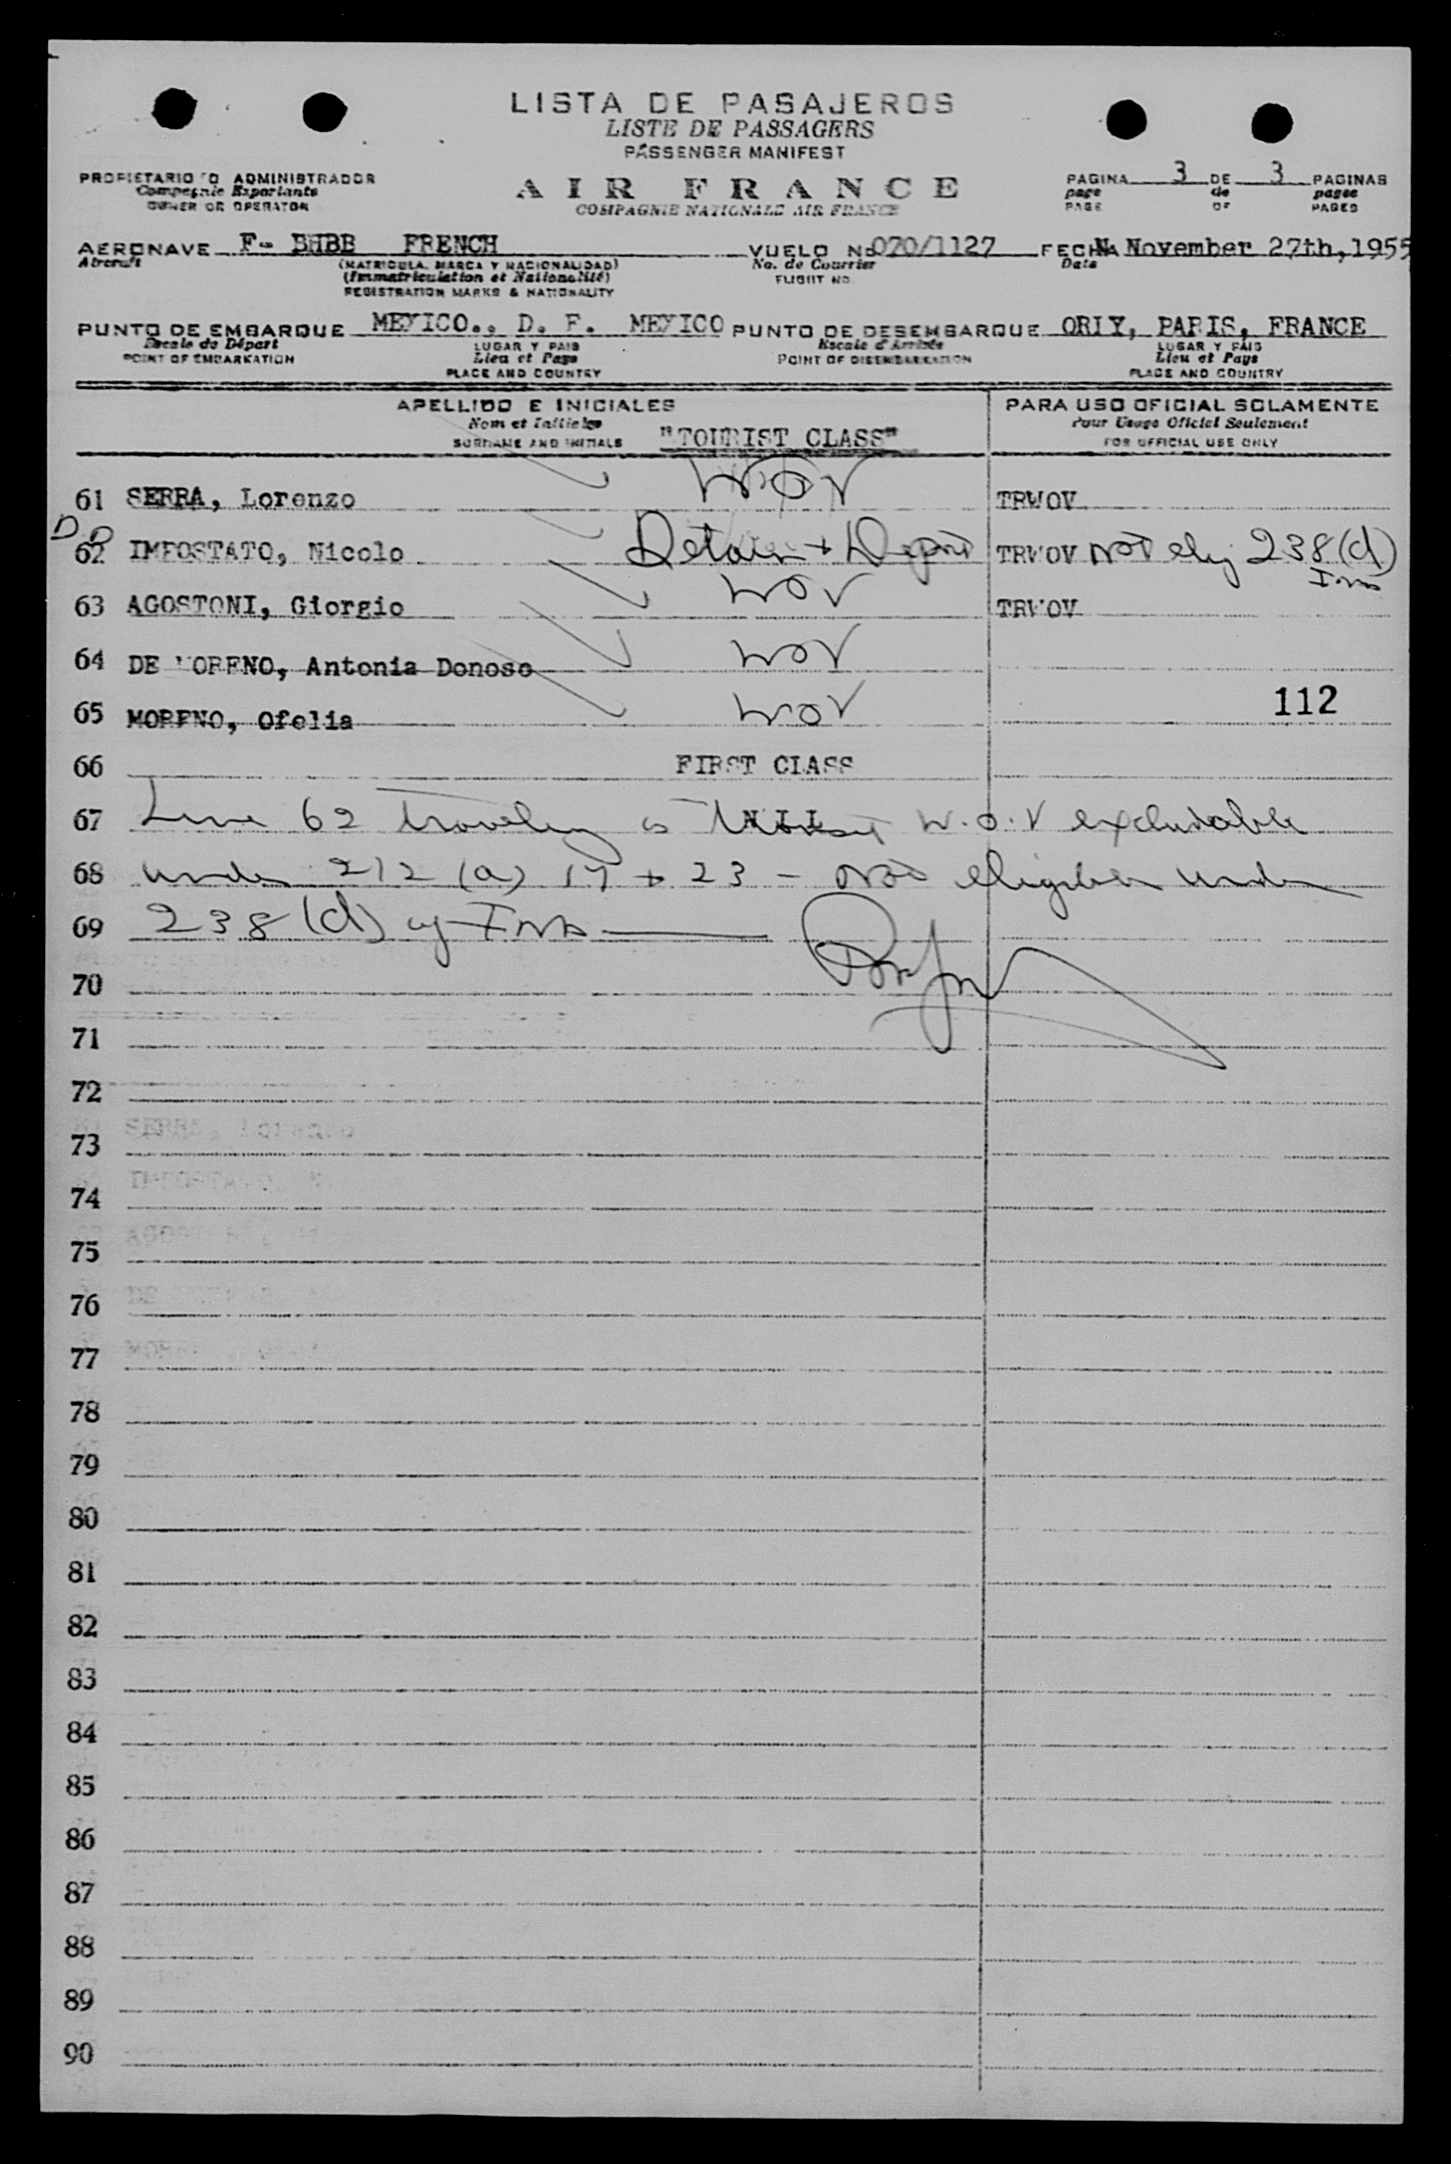 LISTA DE PASAJEROS
LISTE DE PASSAGERS
PASSENGER MANIFEST
PROPIETARIO O ADMINISTRADOR
Compagnie Exploitants
OWNER OR OPERATOR
AIR FRANCE
COMPAGNIE NATIONALE AIR FRANCE
PAGINA 3 DE 3 PAGINAS
page de pages
PAGE OF PAGES
AERONAVE F- BHBB FRENCH VUELO No 070/1127 FECHA November 27th, 1955
Aircraft (MATRICULA, MARCA Y NACIONALIDAD) No. de Courrier Date
(Immatriculation et Nationalité) FLIGHT NO.
REGISTRATION MARKS & NATIONALITY
PUNTO DE EMBARQUE MEXICO., D. F. MEXICO PUNTO DE DESEMBARQUE ORLY, PARIS, FRANCE
Escale de Départ LUGAR Y PAIS Escale d'Arrivée LUGAR Y PAIS
POINT OF EMBARKATION Lieu et Pays POINT OF DISEMBARKATION Lieu et Pays
PLACE AND COUNTRY PLACE AND COUNTRY
APELLIDO E INICIALES PARA USO OFICIAL SOLAMENTE
Nom et Initiales Pour Usage Officiel Seulement
SURNAME AND INITIALS "TOURIST CLASS" FOR OFFICIAL USE ONLY
61 SERRA, Lorenzo WOV TRWOV
D D
62 IMPOSTATO, Nicolo Detain + Deport TRWOV Not elig 238(d)
Imm
63 AGOSTONI, Giorgio WOV TRWOV
64 DE MORENO, Antonia Donoso WOV
65 MORENO, Ofelia WOV 112
66 FIRST CLASS
67 NIL
Line 62 traveling as transit W.O.V excludable
68 under 212 (a) 17 + 23 - not eligible under
69 238(d) of Imm
70
71
72
SERRA, Lorenzo
73
74
75
76
77
78
79
80
81
82
83
84
85
86
87
88
89
90